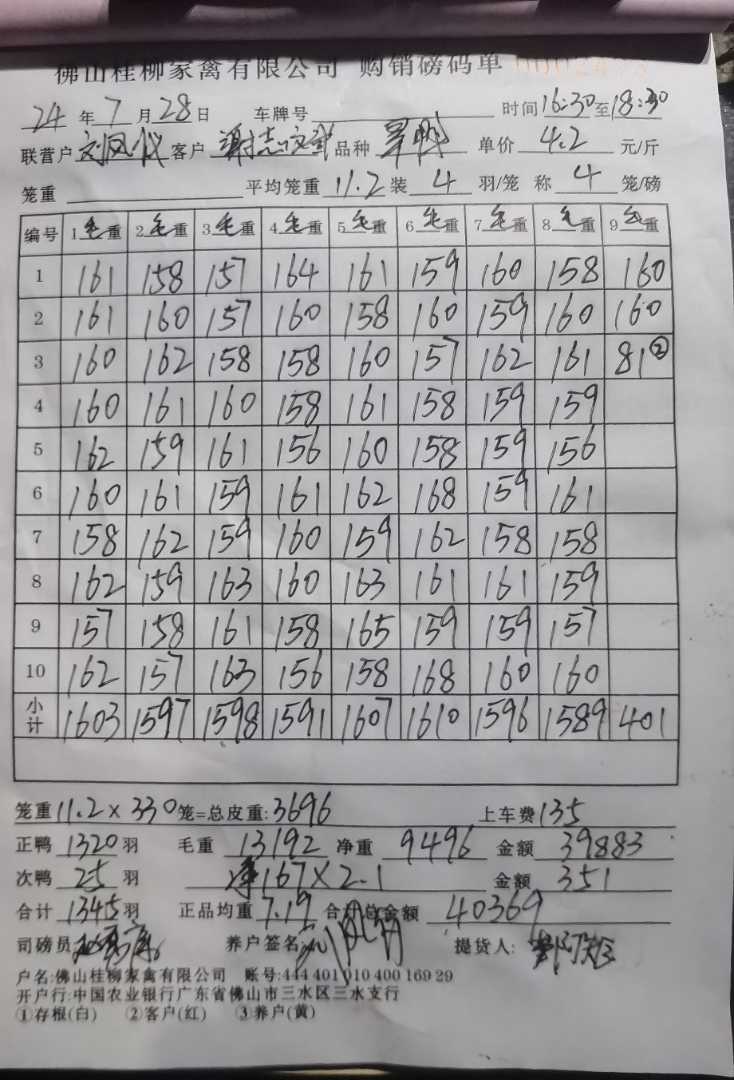 佛山桂柳家禽有限公司 购销磅码单
24 年 7 月 28 日 车牌号 时间 16:30 至 18:30
联营户 刘凤仪 客户 谢志 品种 单价 4.2 元/斤
笼重 平均笼重 11.2 装 4 羽/笼 称 4 笼/磅
编号 1 毛重 2 毛重 3 毛重 4 毛重 5 毛重 6 毛重 7 毛重 8 毛重 9 毛重
1 161 158 157 164 161 159 160 158 160
2 161 160 157 160 158 160 159 160 160
3 160 162 158 158 160 157 162 161 81②
4 160 161 160 158 161 158 159 159
5 162 159 161 156 160 158 159 156
6 160 161 159 161 162 168 159 161
7 158 162 159 160 159 162 158 158
8 162 159 163 160 163 161 161 159
9 157 158 161 158 165 159 159 157
10 162 157 163 156 158 168 160 160
小计 1603 1597 1598 1591 1607 1610 1596 1589 401
笼重 11.2 × 330 笼=总皮重: 3696 上车费 135
正鸭 1320 羽 毛重 13192 净重 9496 金额 39883
次鸭 25 羽 净167×2.1 金额 351
合计 1345 羽 正品均重 7.19 合计总金额 40369
司磅员: 养户签名: 提货人:
户名:佛山桂柳家禽有限公司 账号:444 401 010 400 169 29
开户行:中国农业银行广东省佛山市三水区三水支行
①存根(白) ②客户(红) ③养户(黄)